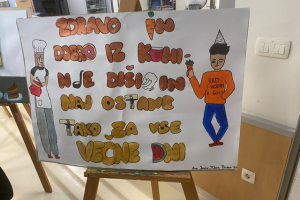 ZDRAVO IN
DOBRO IZ KUHI-
NJE DIŠI IN
NAJ OSTANE
TAKO ZA VSE
VEČNE DNI